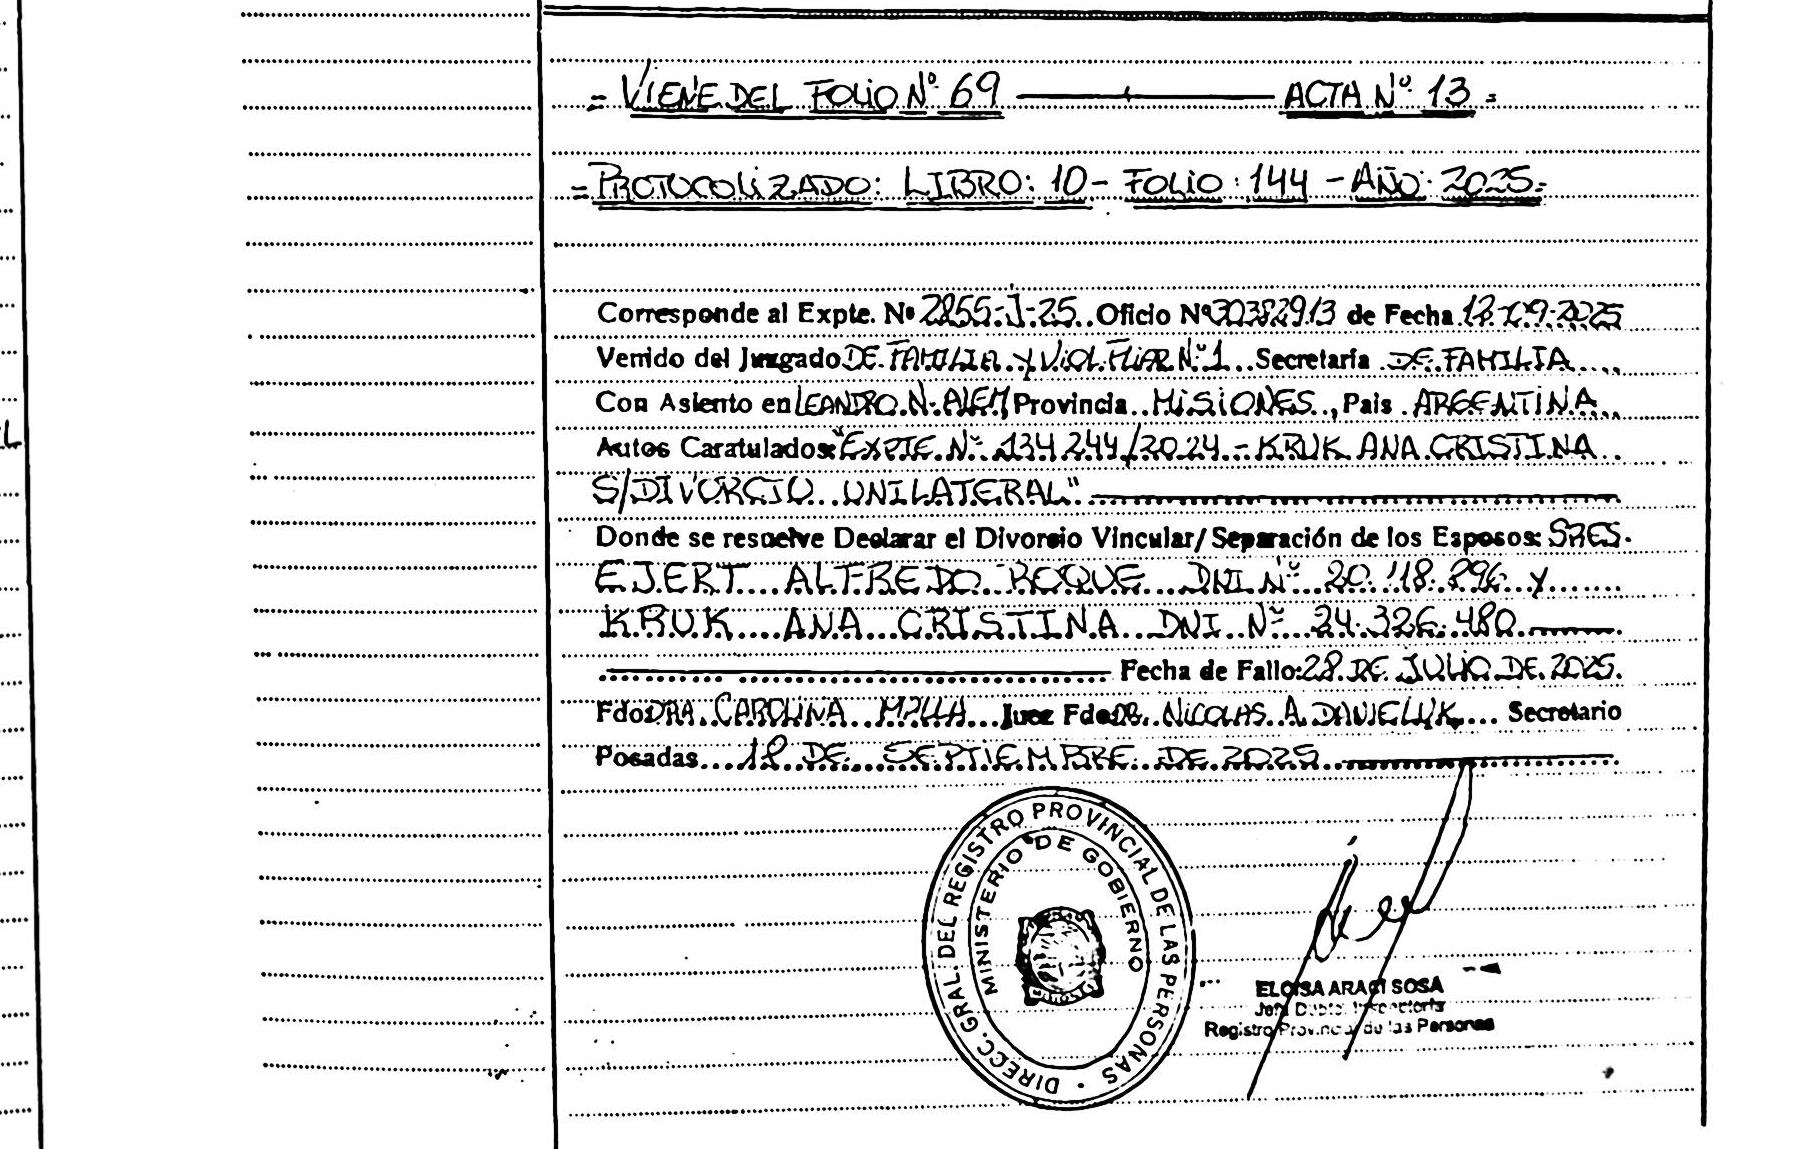 = VIENE DEL FOLIO Nº 69 ACTA Nº 13 =
= PROTOCOLIZADO: LIBRO: 10 - FOLIO: 144 - AÑO: 2025.=
Corresponde al Expte. Nº 2855-J-25. Oficio Nº 30382913 de Fecha 12-09-2025
Venido del Juzgado DE FAMILIA Y VIOL. FLIAR Nº 1 Secretaría DE FAMILIA
Con Asiento en LEANDRO N. ALEM Provincia MISIONES, País ARGENTINA
Autos Caratulados: "EXPTE Nº 134244/2024 - KRUK ANA CRISTINA
S/DIVORCIO UNILATERAL"
Donde se resuelve Declarar el Divorcio Vincular/ Separación de los Esposos: SRES.
EJERT ALFREDO ROQUE DNI Nº 20.118. Y
KRUK ANA CRISTINA DNI Nº 24.326.480
Fecha de Fallo: 28 DE JULIO DE 2025.
Fdo: DRA. CAROLINA Juez Fdo: DR. NICOLAS A. DANIELUK Secretario
Posadas 18 DE SEPTIEMBRE DE 2025
DIRECC. GRAL. DEL REGISTRO PROVINCIAL DE LAS PERSONAS
MINISTERIO DE GOBIERNO
ELOISA ARACI SOSA
Jefa Dpto.
Registro Provincial de las Personas